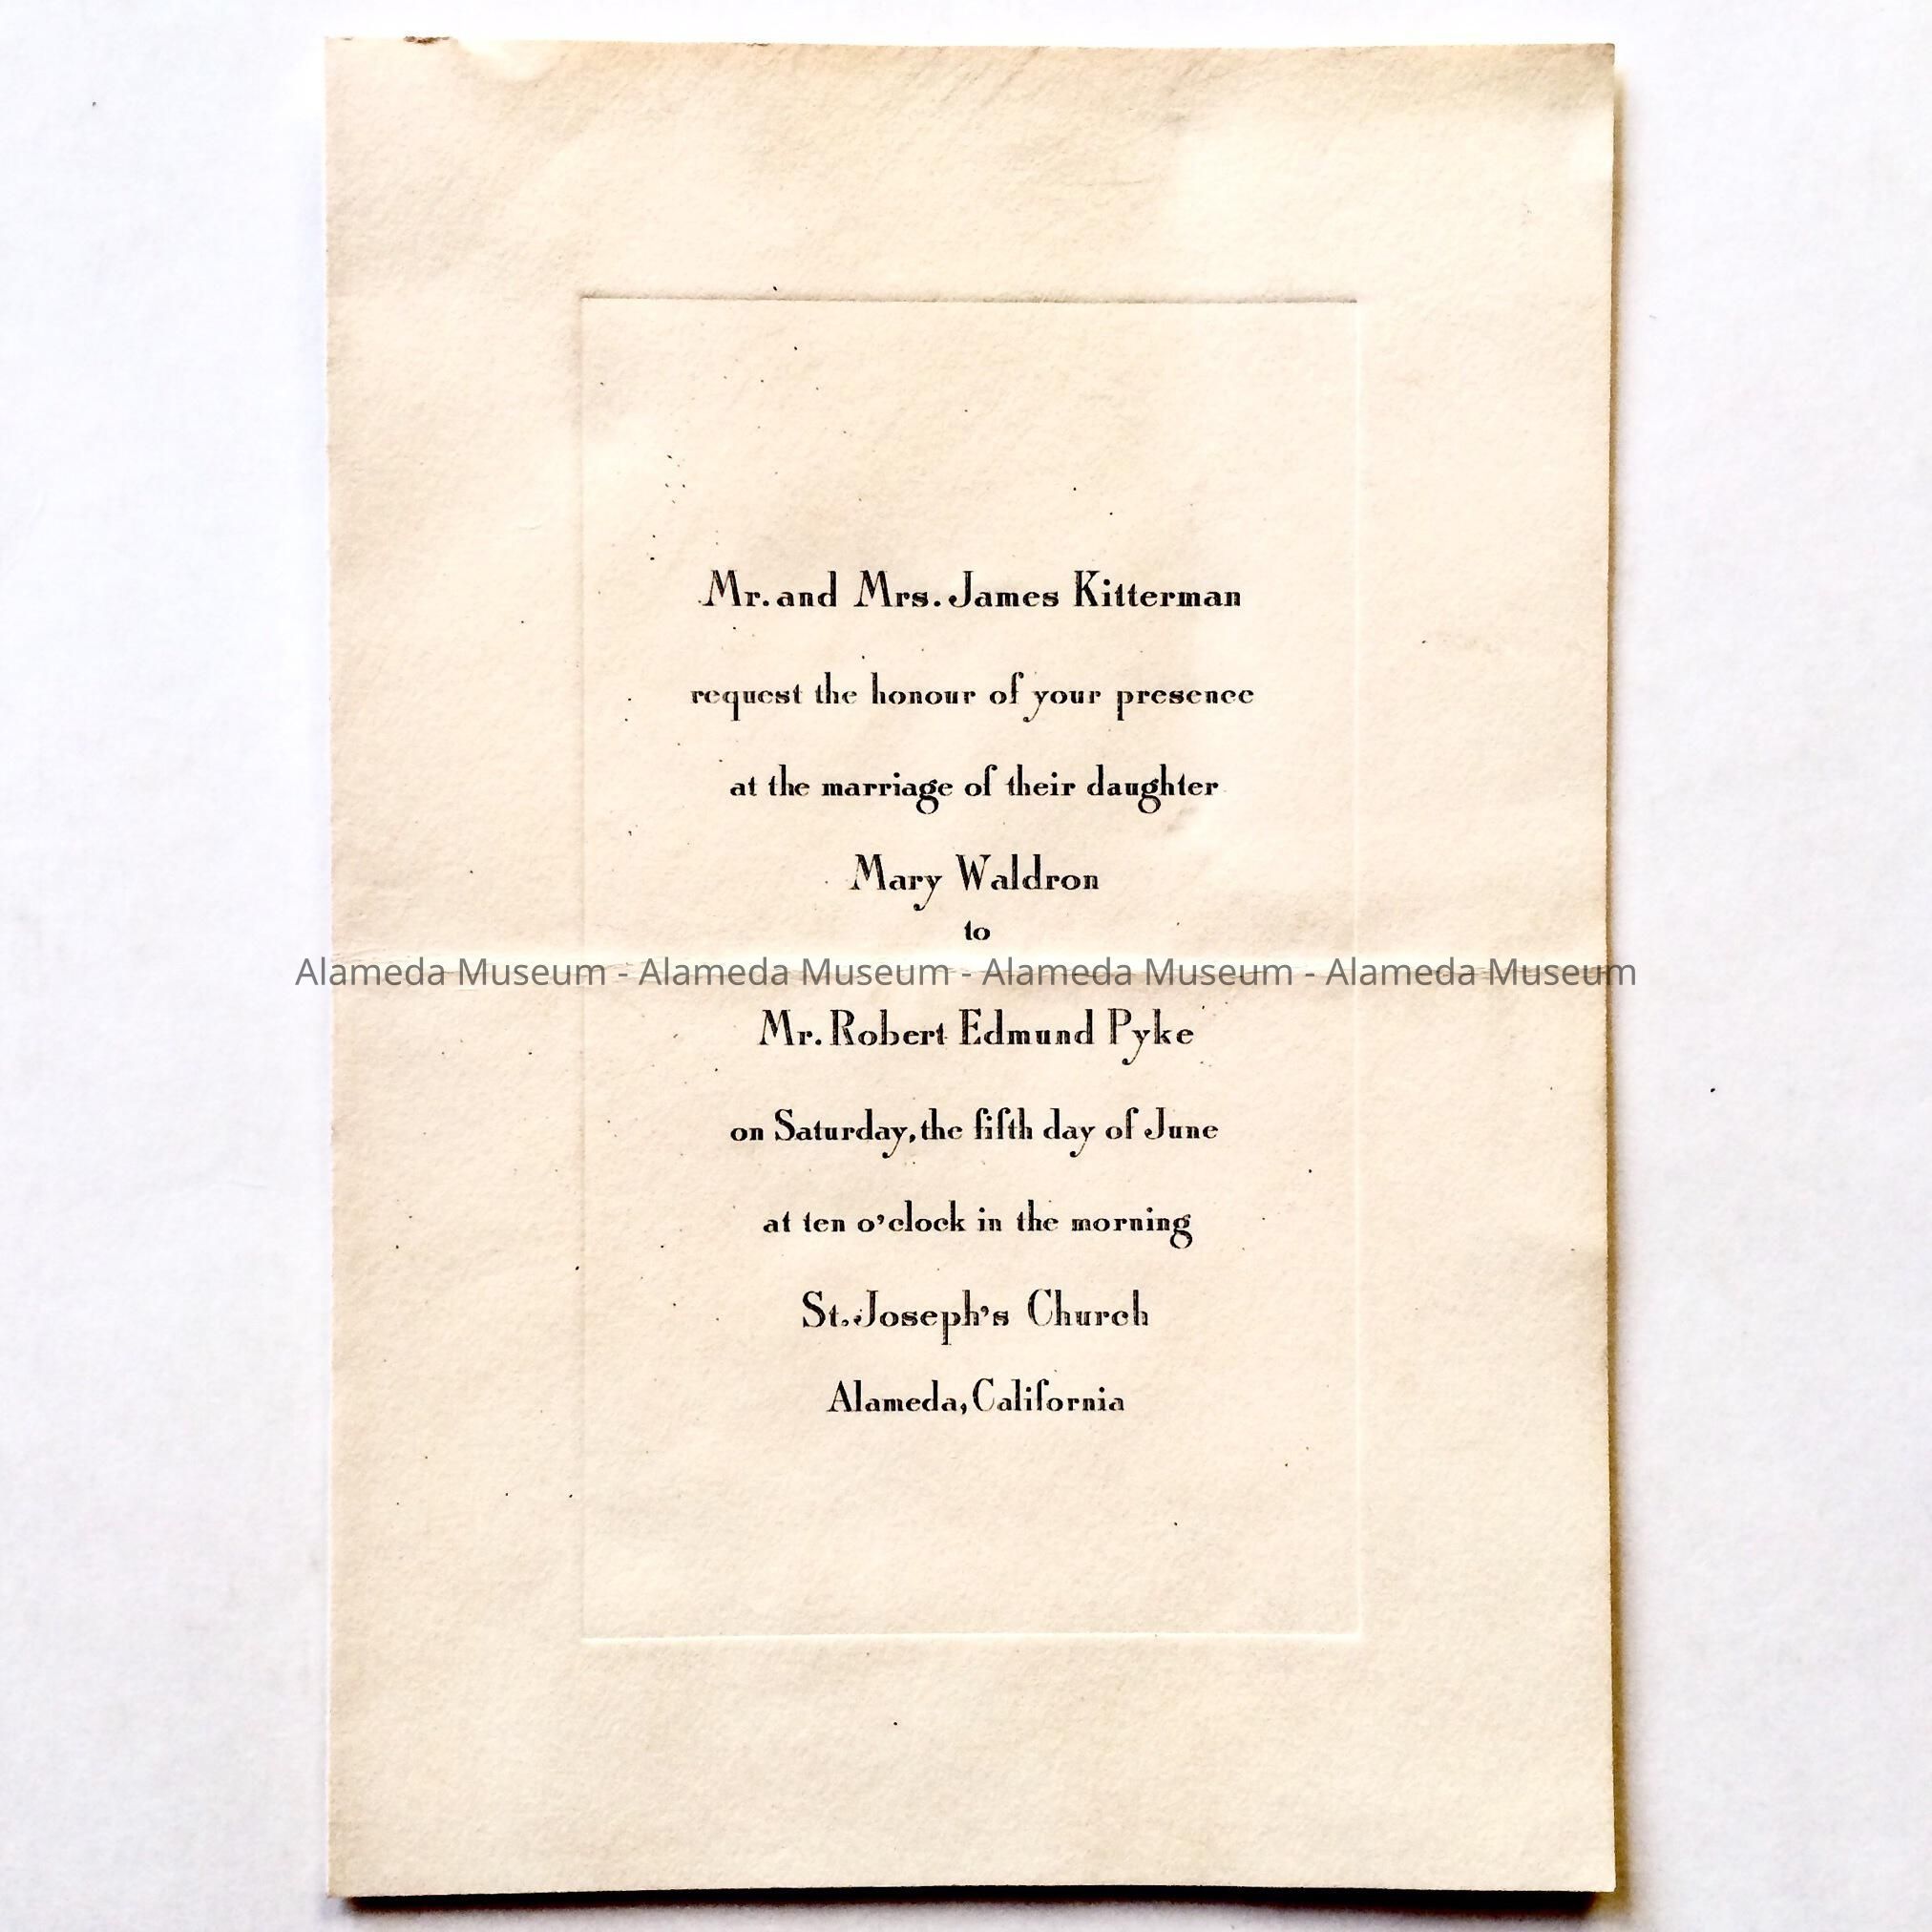 Mr. and Mrs. James Kitterman
request the honour of your presence
at the marriage of their daughter
Mary Waldron
to
Alameda Museum - Alameda Museum - Alameda Museum - Alameda Museum
Mr. Robert Edmund Pyke
on Saturday, the fifth day of June
at ten o'clock in the morning
St. Joseph's Church
Alameda, California